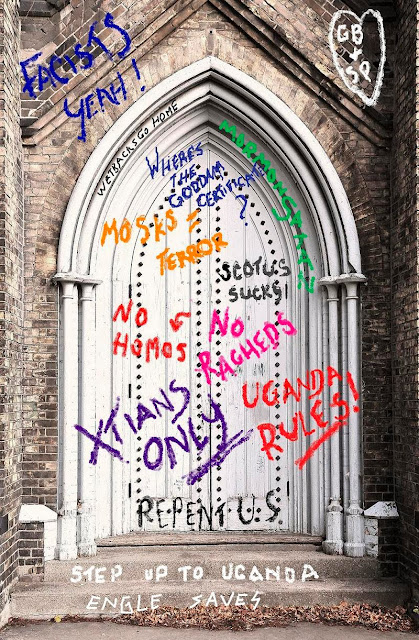 FACISTS
YEAH!
GB
+
SP
WETBACKS GO HOME
WHERE'S
THE
CERTIFICATE
?
MORMON SATAN
MOSKS =
TERROR
SCOTUS
SUCKS!
NO
HOMOS
NO
RAGHEDS
XTIANS
ONLY
UGANDA
RULES!
R·E·P·E·N·T·U·S
STEP UP TO UGANDA
ENGLE SAVES